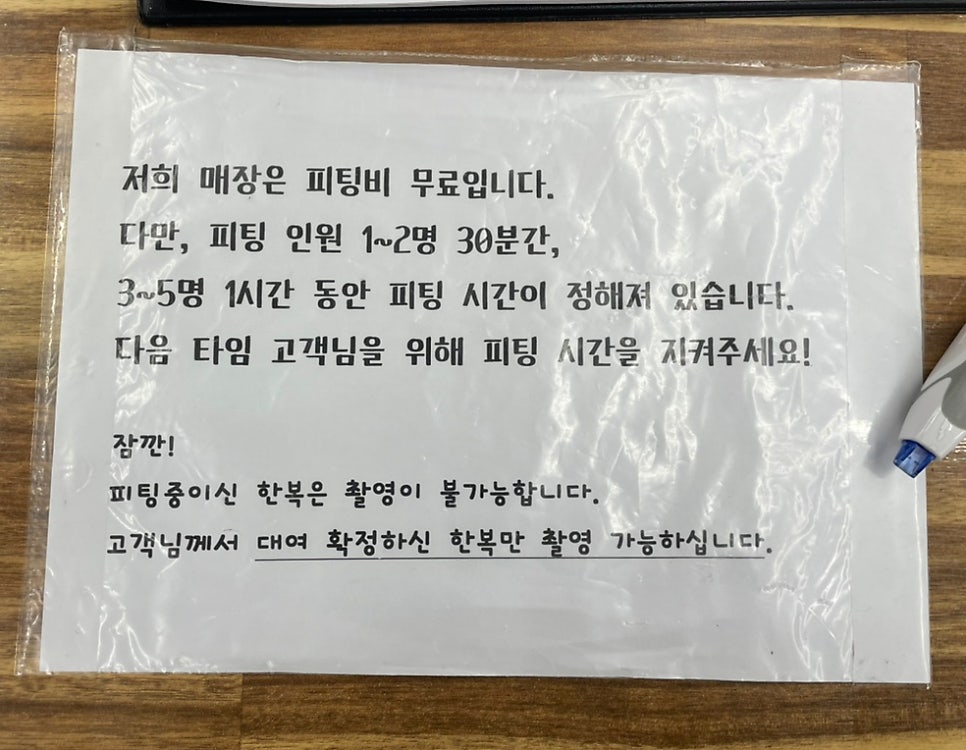 저희 매장은 피팅비 무료입니다.
다만, 피팅 인원 1~2명 30분간,
3~5명 1시간 동안 피팅 시간이 정해져 있습니다.
다음 타임 고객님을 위해 피팅 시간을 지켜주세요!
잠깐!
피팅중이신 한복은 촬영이 불가능합니다.
고객님께서 대여 확정하신 한복만 촬영 가능하십니다.